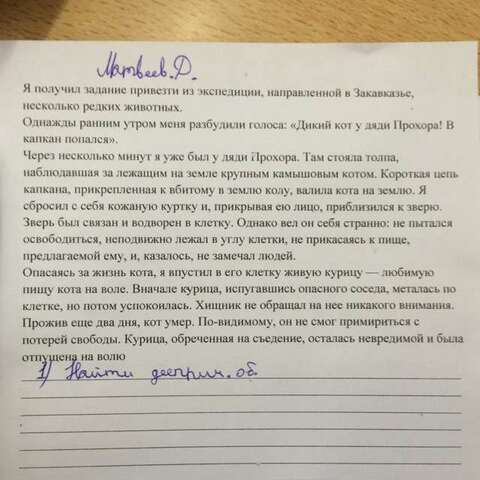 Матвеев.Д.
Я получил задание привезти из экспедиции, направленной в Закавказье,
несколько редких животных.
Однажды ранним утром меня разбудили голоса: «Дикий кот у дяди Прохора! В
капкан попался».
Через несколько минут я уже был у дяди Прохора. Там стояла толпа,
наблюдавшая за лежащим на земле крупным камышовым котом. Короткая цепь
капкана, прикрепленная к вбитому в землю колу, валила кота на землю. Я
сбросил с себя кожаную куртку и, прикрывая ею лицо, приблизился к зверю.
Зверь был связан и водворен в клетку. Однако вел он себя странно: не пытался
освободиться, неподвижно лежал в углу клетки, не прикасаясь к пище,
предлагаемой ему, и, казалось, не замечал людей.
Опасаясь за жизнь кота, я впустил в его клетку живую курицу — любимую
пищу кота на воле. Вначале курица, испугавшись опасного соседа, металась по
клетке, но потом успокоилась. Хищник не обращал на нее никакого внимания.
Прожив еще два дня, кот умер. По-видимому, он не смог примириться с
потерей свободы. Курица, обреченная на съедение, осталась невредимой и была
отпущена на волю
1) Найти дееприч. об